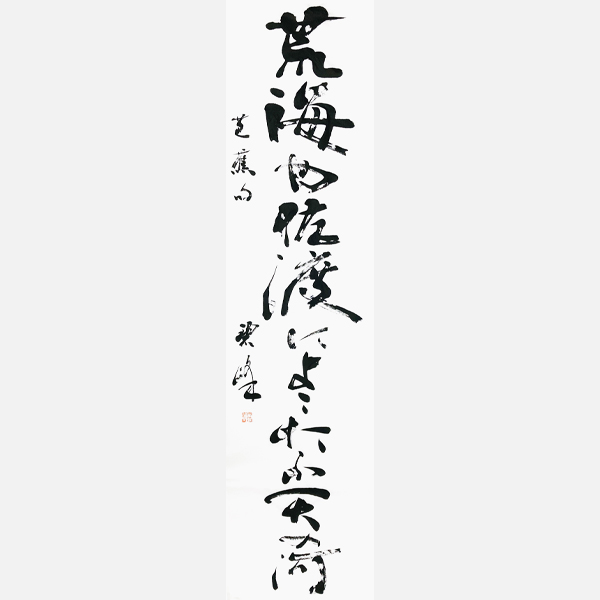 荒海や佐渡によこたふ天河
芭蕉句
峰